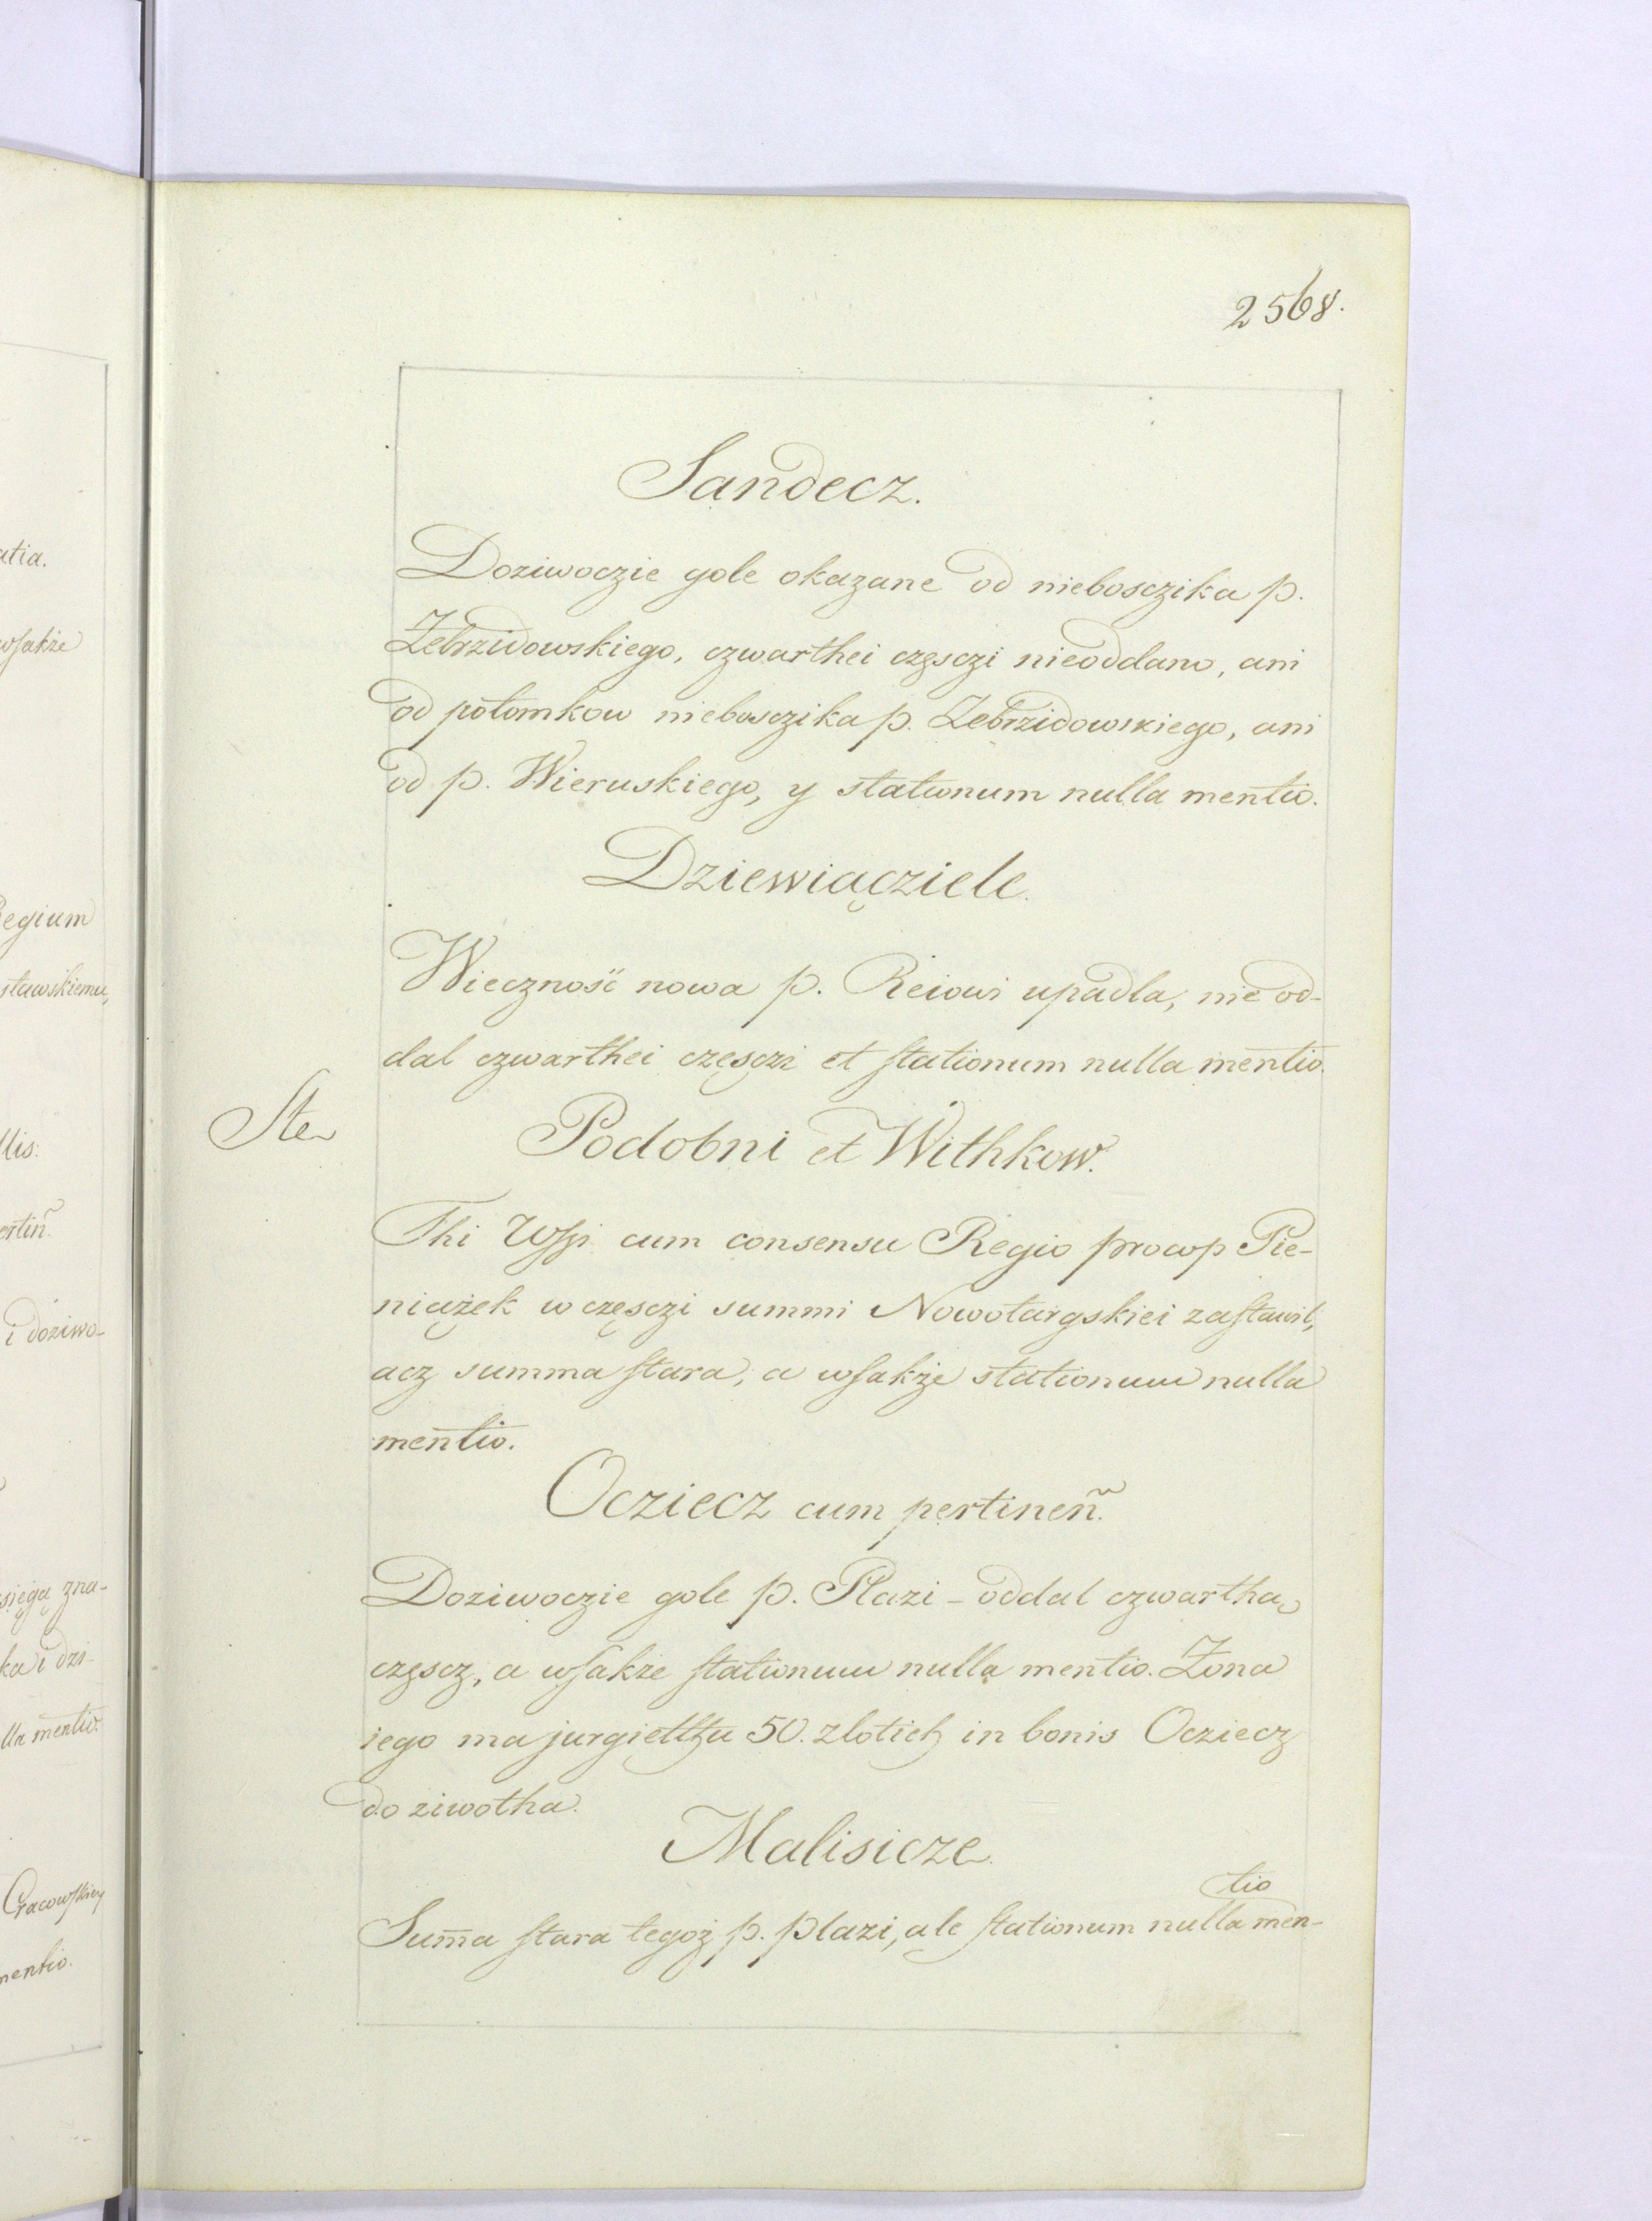 2568.
Sandecz.
Doziwoczie gole okazane od nieboszczika p.
Zebrzidowskiego, czwarthei częsczi nieoddano, ani
od potomkow niebosczika p. Zebrzidowskiego, ani
od p. Wieruskiego, y stationum nulla mentio.
Dziewiącziele.
Wieczność nowa p. Reiowi upadla, nie od-
dal czwarthei częsczi et stationum nulla mentio.
Ste
Podobni et Withkow.
Thi Wssi cum consensu Regio procop Pie-
niążek w częsczi summi Nowotargskiei zastawil,
acz summa stara, a wsakże stationum nulla
mentio.
Ocziecz cum pertineñ.
Doziwoczie gole p. Plazi - oddal czwartha
częscz, a wsakże stationum nulla mentio. Zona
iego ma jurgielthu 50. zlotich in bonis Ocziecz
do ziwotha.
Malisicze.
Sum̄a stara tegoż p. plazi, ale stationum nulla men-
tio
atia.
wsakże
Regium
stawskiemu,
llis:
ertiñ.
i doziwo-
sięgą zna-
ka i dzi-
lla mentio.
Cracowskiey
mentio.